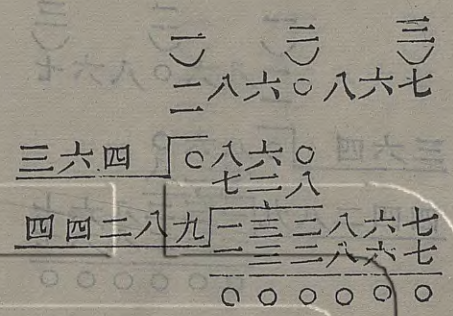 一) 二) 三)
一八六〇八六七
一
三六四 〇八六〇
七二八
四四二八九 一三二八六七
一三二八六七
〇〇〇〇〇〇